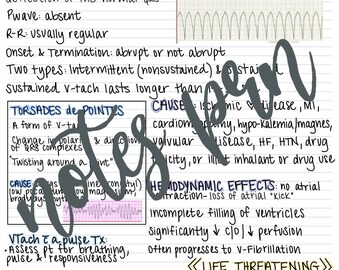 Pwave: absent
R-R: usually regular
Onset & Termination: abrupt or not abrupt
Two types: Intermittent (nonsustained) & sustained
Sustained v-tach lasts longer than
TORSADES de POINTES
A form of v-tach
Change in amplitude & direction
of QRS complexes
"Twisting around a point"
CAUSE:
VTach c̄ a pulse Tx:
Assess pt for breathing,
pulse & responsiveness
CAUSE: Ischemic disease, MI,
cardiomyopathy, hypo-kalemia/magnes,
valvular disease, HF, HTN, drug
toxicity, or illicit inhalant or drug use
HEMODYNAMIC EFFECTS: no atrial
contraction- loss of atrial "kick"
Incomplete filling of ventricles
Significantly ↓ c/o | ↓ perfusion
Often progresses to v-fibrillation
<<LIFE THREATENING>>
notes pen